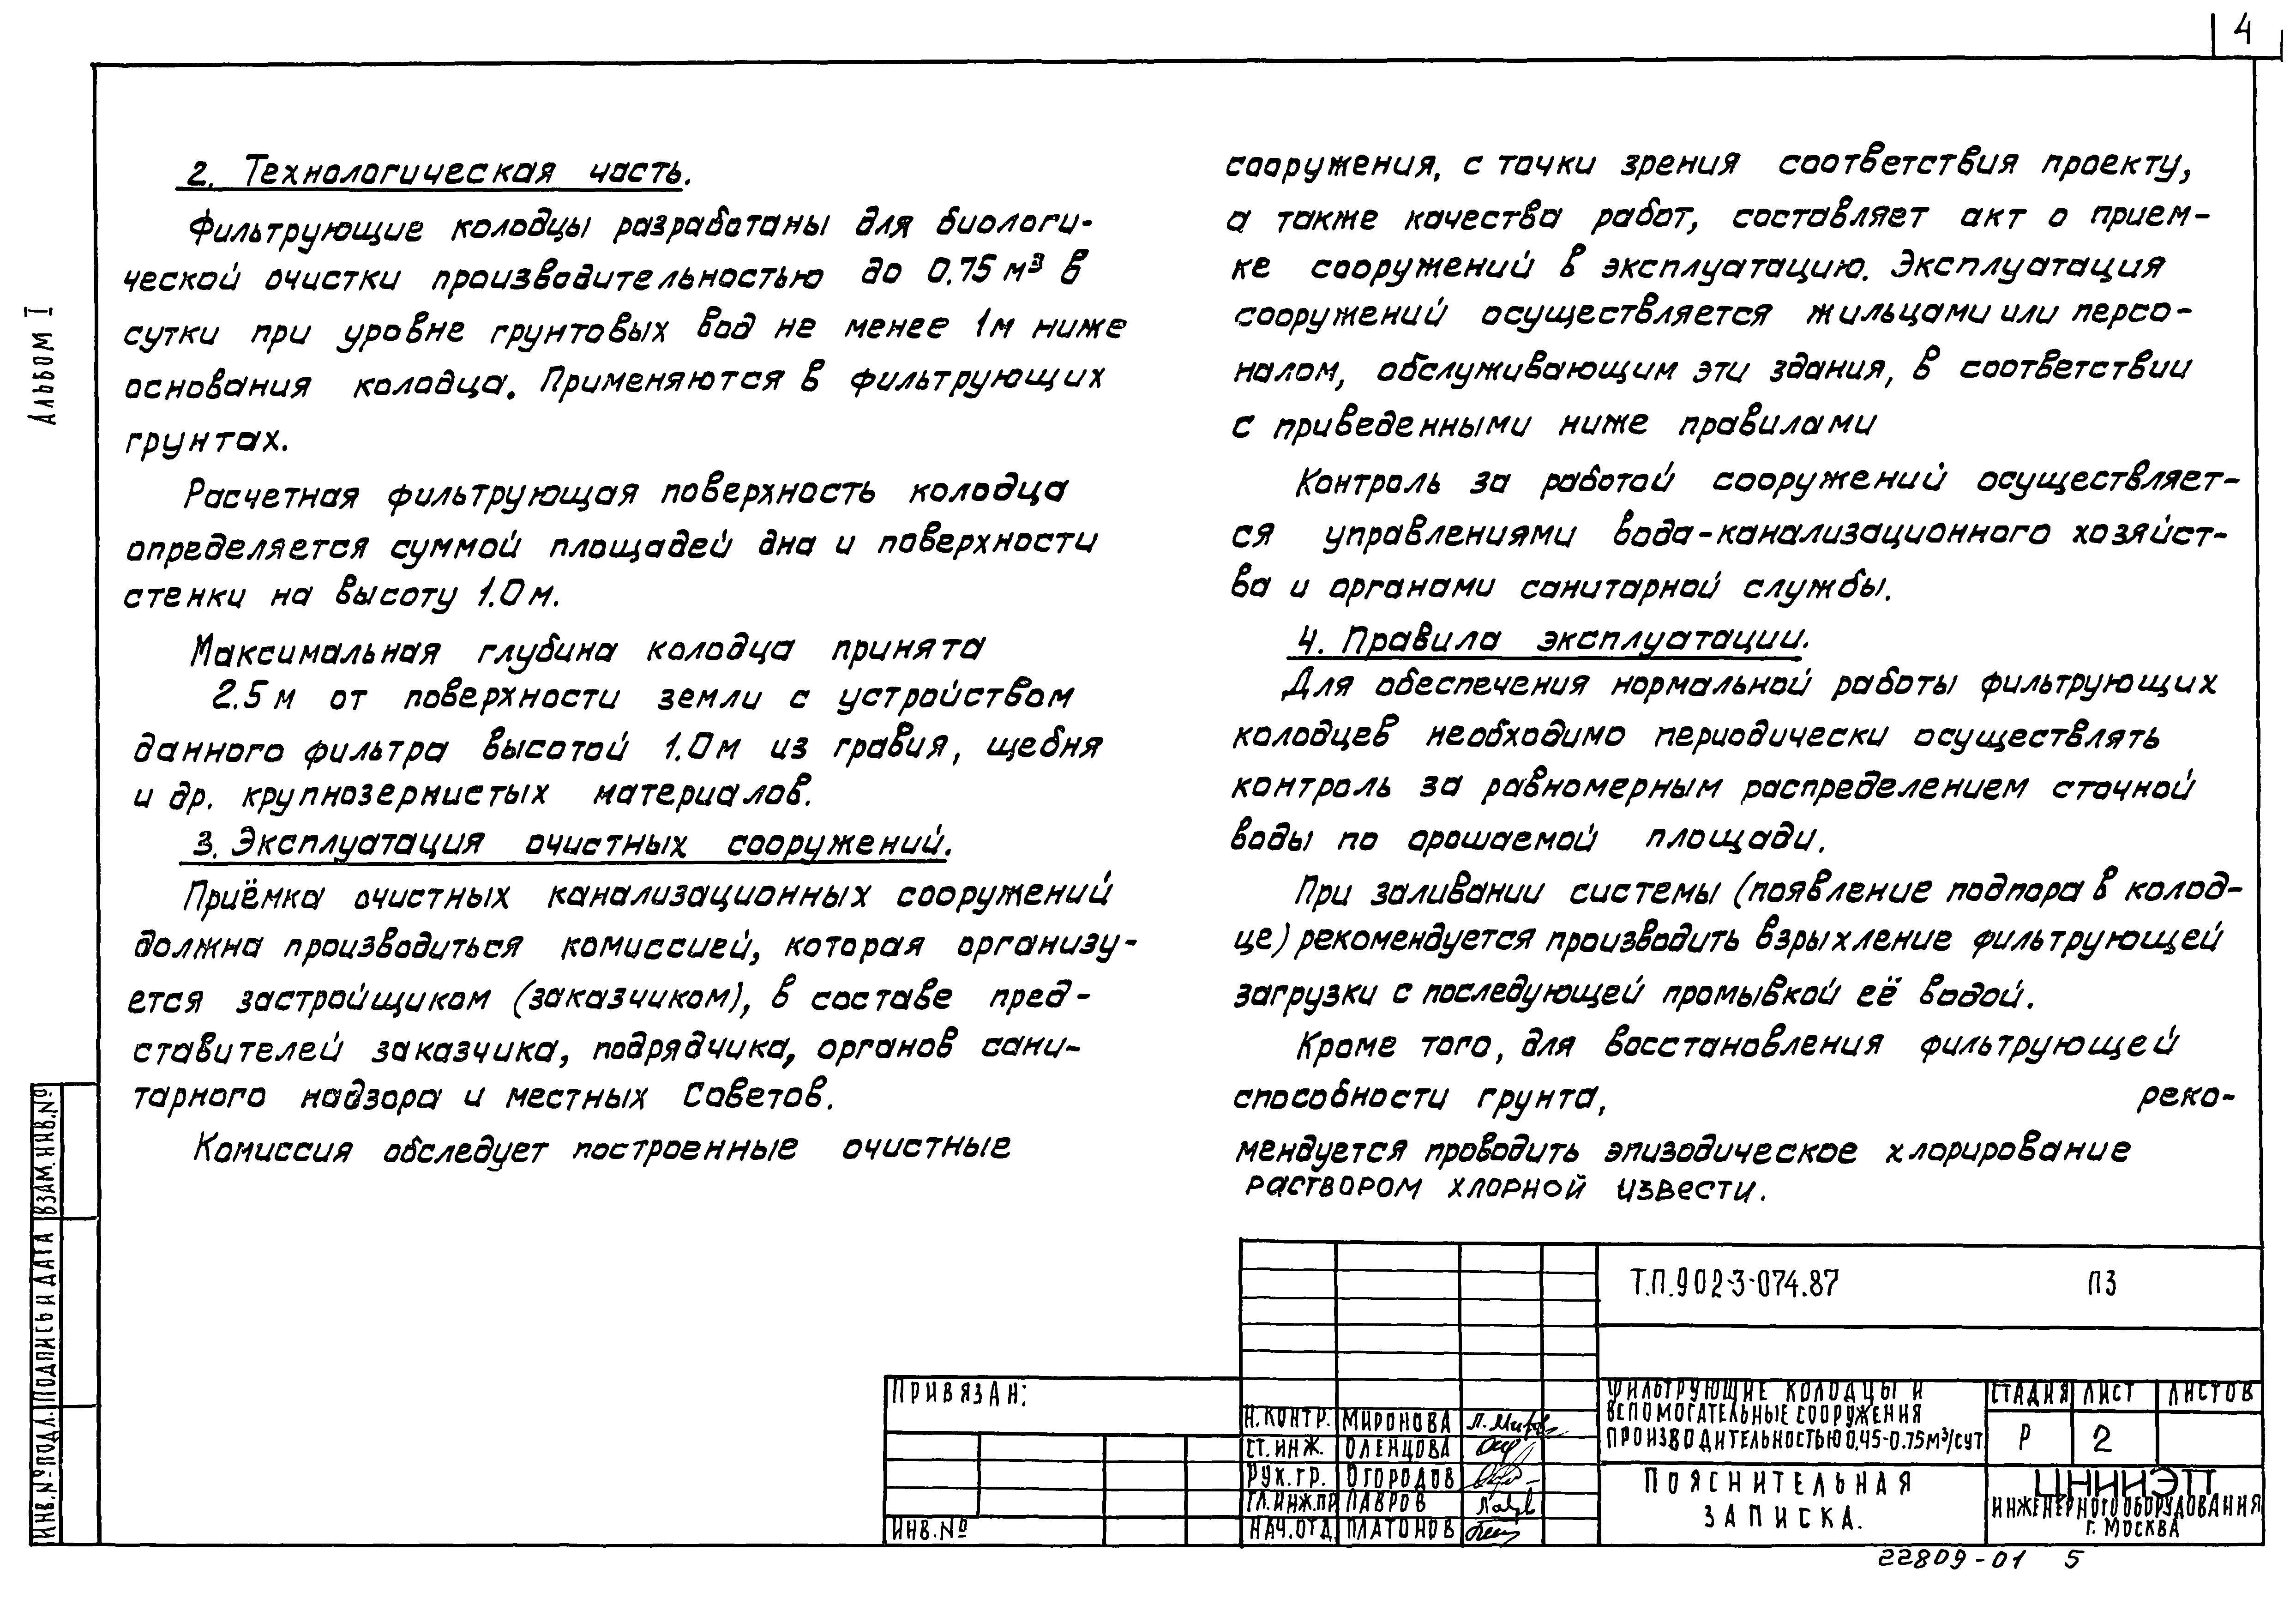 4
Альбом I
2. Технологическая часть.
Фильтрующие колодцы разработаны для биологи-
ческой очистки производительностью до 0.75 м³ в
сутки при уровне грунтовых вод не менее 1м ниже
основания колодца. Применяются в фильтрующих
грунтах.
Расчетная фильтрующая поверхность колодца
определяется суммой площадей дна и поверхности
стенки на высоту 1.0 м.
Максимальная глубина колодца принята
2.5 м от поверхности земли с устройством
данного фильтра высотой 1.0 м из гравия, щебня
и др. крупнозернистых материалов.
3. Эксплуатация очистных сооружений.
Приёмка очистных канализационных сооружений
должна производиться комиссией, которая организу-
ется застройщиком (заказчиком), в составе пред-
ставителей заказчика, подрядчика, органов сани-
тарного надзора и местных Советов.
Комиссия обследует построенные очистные
сооружения, с точки зрения соответствия проекту,
а также качества работ, составляет акт о прием-
ке сооружений в эксплуатацию. Эксплуатация
сооружений осуществляется жильцами или персо-
налом, обслуживающим эти здания, в соответствии
с приведенными ниже правилами
Контроль за работой сооружений осуществляет-
ся управлениями вода-канализационного хозяйст-
ва и органами санитарной службы.
4. Правила эксплуатации.
Для обеспечения нормальной работы фильтрующих
колодцев необходимо периодически осуществлять
контроль за равномерным распределением сточной
воды по орошаемой площади.
При заливании системы (появление подпора в колод-
це) рекомендуется производить взрыхление фильтрующей
загрузки с последующей промывкой её водой.
Кроме того, для восстановления фильтрующей
способности грунта, реко-
мендуется проводить эпизодическое хлорирование
раствором хлорной извести.
Инв.№ подл. Подпись и дата Взам. инв.№
Привязан:
Инв.№
Н.контр. Миронова
Ст.инж. Оленцова
Рук.гр. Огородов
Гл.инж.пр Лавров
Нач.отд Платонов
Т.П.902-3-074.87 ПЗ
Фильтрующие колодцы и
вспомогательные сооружения
производительностью 0.45-0.75м³/сут
Стадия Лист Листов
Р 2
Пояснительная
записка.
ЦНИИЭП
инженерного оборудования
г. Москва
22809-01 5